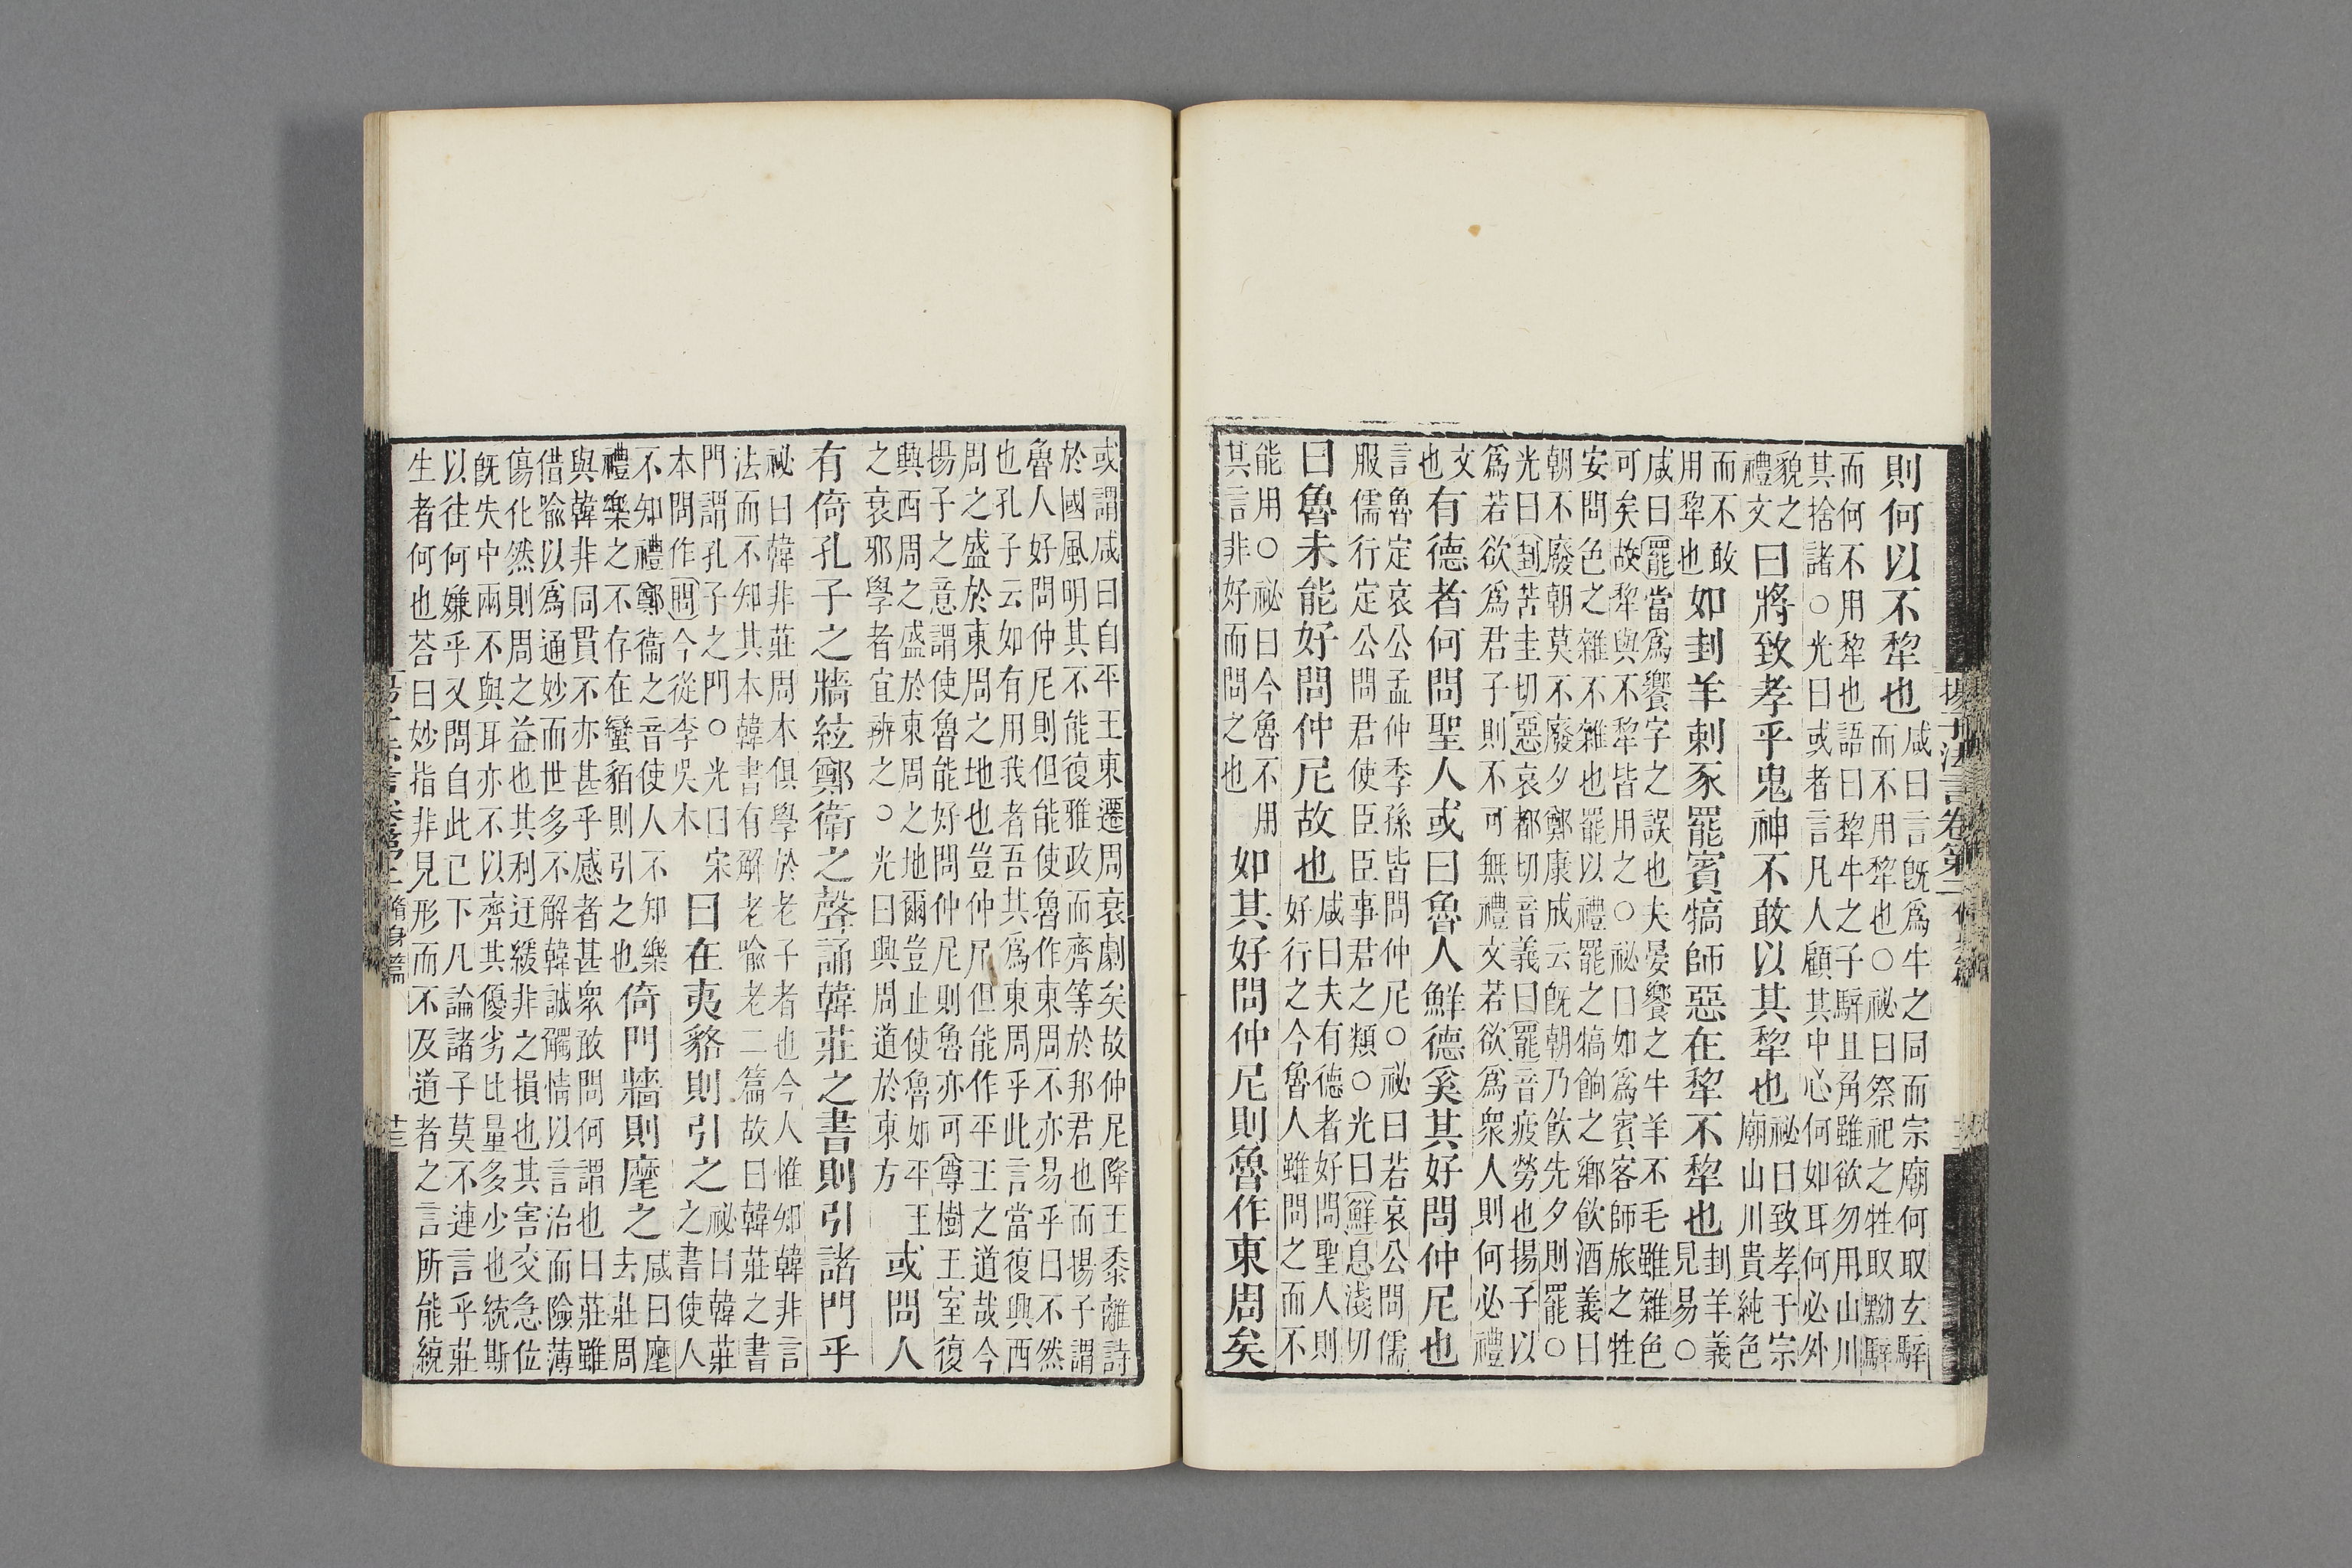 揚子法言卷第三 脩身篇
則何以不犂也
咸曰言旣爲牛之同而宗廟何取玄騂
而不用犂也○祕曰祭祀之牲取黝騂
而何不用犂也語曰犂牛之子騂且角雖欲勿用山川
其捨諸○光曰或者言凡人顧其中心何如耳何必外
貌之
禮文
曰將致孝乎鬼神不敢以其犂也
祕曰致孝于宗
廟山川貴純色
而不敢
用犂也
如刲羊刺豕罷賓犒師惡在犂不犂也
刲羊義
見易○
咸曰罷當爲饗字之誤也夫晏饗之牛羊不毛雖雜色
可矣故犂與不犂皆用之○祕曰如爲賓客師旅之牲
安問色之雜不雜也罷以禮罷之犒餉之鄉飲酒義曰
朝不廢朝莫不廢夕鄭康成云旣朝乃飲先夕則罷○
光曰刲苦圭切惡哀都切音義曰罷音疲勞也揚子以
爲若欲爲君子則不可無禮文若欲爲衆人則何必禮
文
也
有德者何問聖人或曰魯人鮮德奚其好問仲尼也
言魯定哀公孟仲季孫皆問仲尼○祕曰若哀公問儒
服儒行定公問君使臣臣事君之類○光曰鮮息淺切
曰魯未能好問仲尼故也
咸曰夫有德者好問聖人則
好行之今魯人雖問之而不
能用○祕曰今魯不用
其言非好而問之也
如其好問仲尼則魯作東周矣
或謂咸曰自平王東遷周衰劇矣故仲尼降王黍離詩
於國風明其不能復雅政而齊等於邦君也而揚子謂
魯人好問仲尼則但能使魯作東周不亦易乎曰不然
也孔子云如有用我者吾其爲東周乎此言當復興西
周之盛於東周之地也豈仲尼但能作平王之道哉今
揚子之意謂使魯能好問仲尼則魯亦可尊樹王室復
興西周之盛於東周之地爾豈止使魯如平王
之衰邪學者宜辨之○光曰興周道於東方
或問人
有倚孔子之牆絃鄭衛之聲誦韓莊之書則引諸門乎
祕曰韓非莊周木俱學於老子者也今人惟知韓非言
法而不知其本韓書有解老喻老二篇故曰韓莊之書
門謂孔子之門○光曰宋
本問作今從李吳木
曰在夷貉則引之
祕曰韓莊
之書使人
不知禮鄭衞之音使人不知樂
禮樂之不存在蠻貊則引之也
倚門牆則麾之
咸曰麾
去莊周
與韓非同貫不亦甚乎感者甚衆敢問何謂也曰莊雖
借喻以爲通妙而世多不解韓誠觸情以言治而險薄
傷化然則周之益也其利迂緩非之損也其害交急位
旣失中兩不與耳亦不以齊其優劣比量多少也統斯
以往何嫌乎又問自此已下凡論諸子莫不連言乎莊
生者何也荅曰妙指非見形而不及道者之言所能統
脩身篇